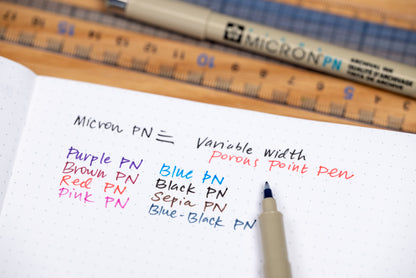 MICRON PN
ARCHIVAL INK
QUALITÉ D'ARCHIVAGE
TINTA DE ARCHIVO
15
5
Micron PN =
Variable width
porous point pen
Purple PN
Brown PN
Red PN
Pink PN
Blue PN
Black PN
Sepia PN
Blue-Black PN